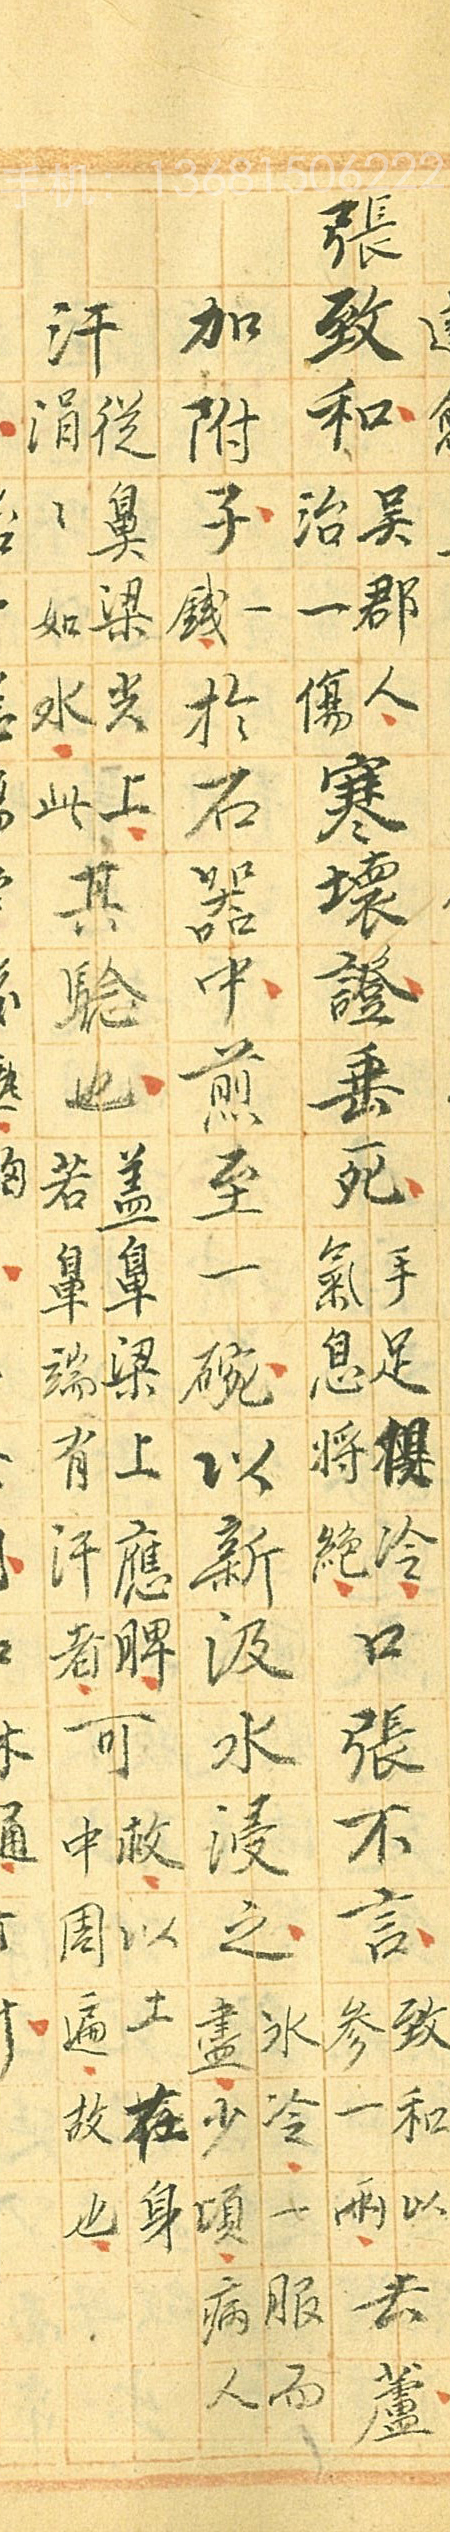 手机：13681506222
張致和吳郡人治一傷寒壞證垂死手足俱冷氣息將絕口張不言致和以參一兩去蘆
加附子一錢於石器中煎至一碗以新汲水浸之氷冷一服而盡少頃病人
汗從鼻梁尖上涓〻如水此其驗也蓋鼻梁上應脾若鼻端有汗者可救以土在身中周遍故也